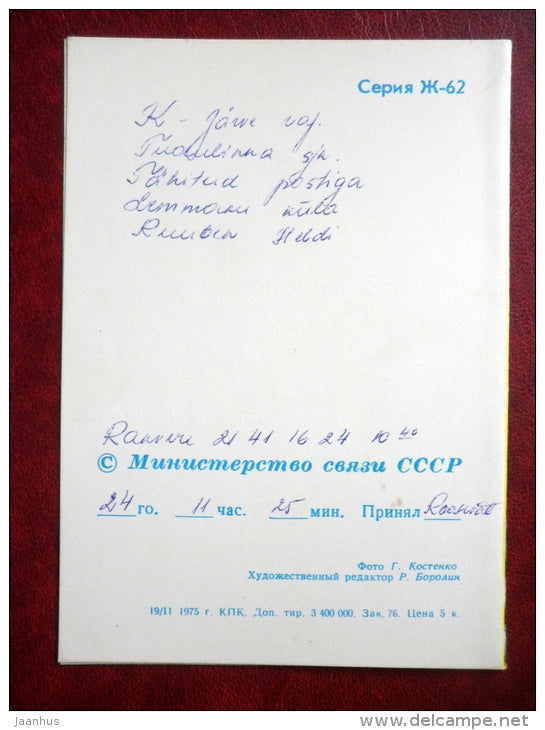 Серия Ж-62
K-Järve raj.
Tudulinna s/n.
Tähitud postiga
Lemmaku küla
Ruuben Heldi
Rakvere 21 41 16 24 10 40
© Министерство связи СССР
24 го. 11 час. 25 мин. Принял
Фото Г. Костенко
Художественный редактор Р. Боролин
19/11 1975 г. КПК. Доп. тир. 3 400 000. Зак. 76. Цена 5 к.
jaanhus www.delcampe.net